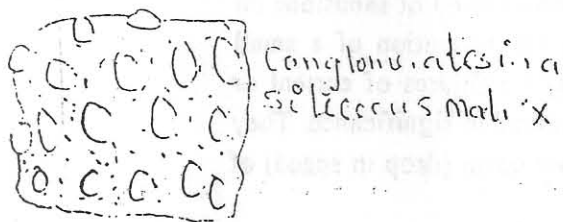 Conglomerates in a
Siliceous Matrix